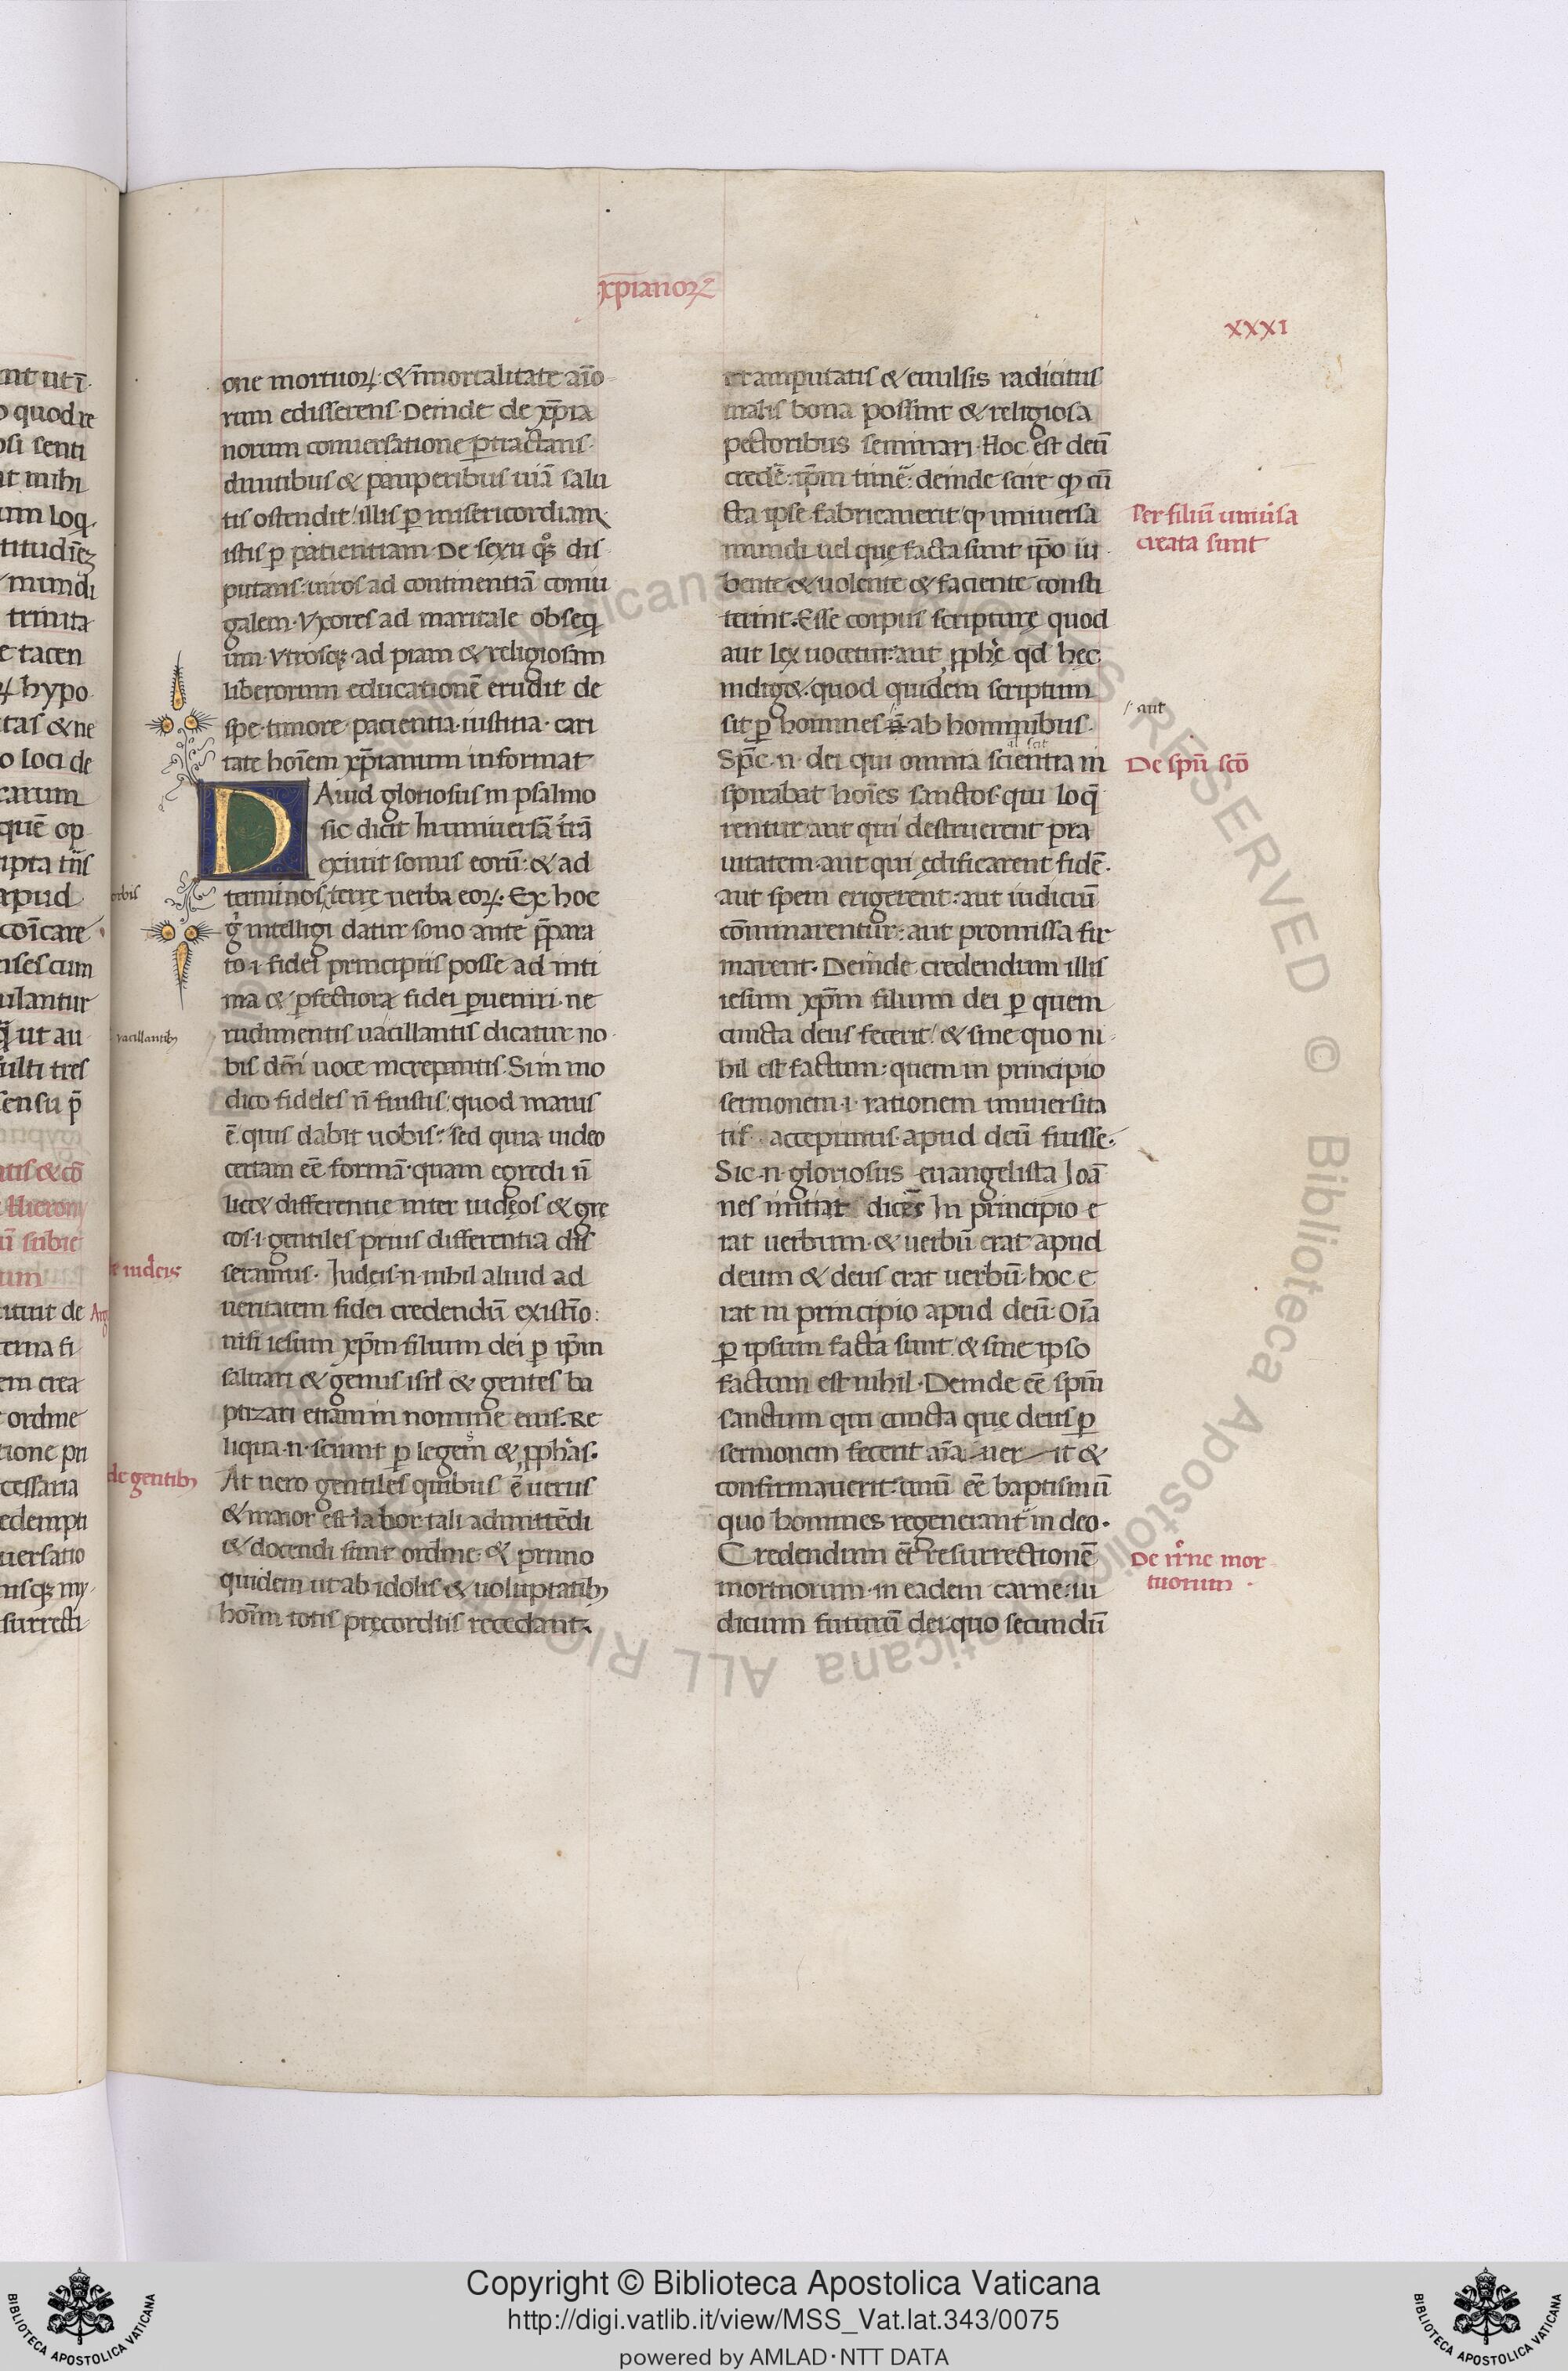 xp̄ianoꝝ
XXXI
one mortuoꝝ· & īmortalitate aīo
rum edisserens· Deinde de xp̄ia
norum conuersatione ꝑtractans·
diuitibus & pauperibus uiā salu
tis ostendit· illis ꝑ misericordiam
istis ꝑ patientiam· De sexu qꝫ dis
putans· uiros ad continentiā coniu
galem· Vxores ad maritale obseq̄
um· Vtrosqꝫ ad piam & religiosam
liberorum educationē erudit de
spe· timore· pacientia· iustitia· cari
tate hoīem xp̄ianum informat
DAuid gloriosus in psalmo
sic dicit In uniuersā t̄rā
exiuit sonus eorū· & ad
terminos terre uerba eoꝝ· Ex hoc
g̊ intelligi datur sono ante p̄para
to· i· fidei principiis posse ad inti
ma & ꝑfectiora fidei ꝑueniri· ne
rudimentis uacillantis dicatur no
bis dm̄i uoce increpantis· Si in mo
dico fideles n̄ fuistis· quod maius
ē quis dabit uobis? sed quia uideo
certam eē formā· quam egredi n̄
licet differentie inter iudęos & gre
cos· i· gentiles prius differentia dis
seramus· Iudeis· n· nihil aliud ad
ueritatem fidei credendū existīo·
nisi iesum xp̄m filium dei ꝑ ip̄m
saluari & genus isrl̄ & gentes ba
ptizari etiam in nomine eius· Re
liqua· n· sciunt ꝑ legem & ꝓphās·
At uero gentiles quibus ē uerus
& maior est labor tali admittēdi
& docendi sunt ordine· & primo
quidem ut ab idolis & uoluptatibꝫ
hoīm totis pręcordiis recedant·
orbis
uacillantibꝫ
de iudeis
de gentibꝫ
ut amputatis & euulsis radicitus
malis bona possint & religiosa
pectoribus seminari· Hoc est deū
credē· ip̄m timē· deinde scire ꝙ cū
cta ipse fabricauerit· ꝙ uniuersa
mundi uel que facta sunt ip̄o iu
bente & uolente & faciente consti
terint· Esse corpus scripturę quod
aut lex uocetur· aut ꝓphē qd̄ hęc
indiget· quod quidem scriptum
sit ꝑ homines n̄ ab hominibus·
Sp̄c· n· dei qui omnia scientia in
spirabat hoīes sanctos· qui loq̄
rentur aut qui destruerent pra
uitatem· aut qui ędificarent fidē·
aut spem erigerent· aut iudiciū
cōminarentur· aut promissa fir
marent· Deinde credendum illis
iesum xp̄m filium dei ꝑ quem
cuncta deus fecerit· & sine quo ni
hil est factum· quem in principio
sermonem· i· rationem uniuersita
tis accepimus· apud deū fuisse·
Sic· n· gloriosus euangelista Ioā
nes initiat dicēs In principio e
rat uerbum· & uerbū erat apud
deum & deus erat uerbū· hoc e
rat in principio apud deū· Oīa
ꝑ ipsum facta sunt· & sine ipso
factum est nihil· Deinde eē spm̄
sanctum qui cuncta que deus ꝑ
sermonem fecerit it &
confirmauerit· unū eē baptismū
quo homines regenerant̄ in deo·
Credendum et̄ resurrectionē
mortuorum· in eadem carne· iu
dicium futurū dei· quo secundū
Per filiū uniūsa
creata sunt
aut
De spū scō
De rr̄ne mor
tuorum
Copyright © Biblioteca Apostolica Vaticana
http://digi.vatlib.it/view/MSS_Vat.lat.343/0075
powered by AMLAD·NTT DATA
BIBLIOTECA APOSTOLICA VATICANA
BIBLIOTECA APOSTOLICA VATICANA